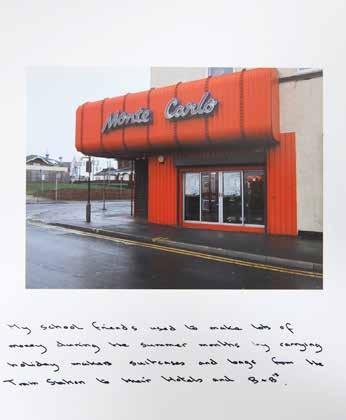 Monte Carlo
My school friends used to make lots of
money during the summer months by carrying
holiday makers suitcases and bags from the
Train Station to their Hotels and B+B's.